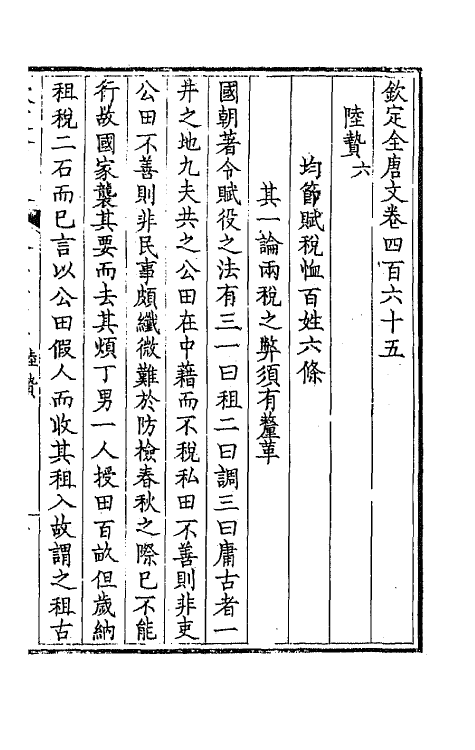 欽定全唐文卷四百六十五
陸贄六
均節賦稅恤百姓六條
其一論兩稅之弊須有釐革
國朝著令賦役之法有三一曰租二曰調三曰庸古者一
井之地九夫共之公田在中藉而不稅私田不善則非吏
公田不善則非民事頗纖微難於防檢春秋之際已不能
行故國家襲其要而去其煩丁男一人授田百畝但歲納
租稅二石而已言以公田假人而收其租入故謂之租古
陸贄